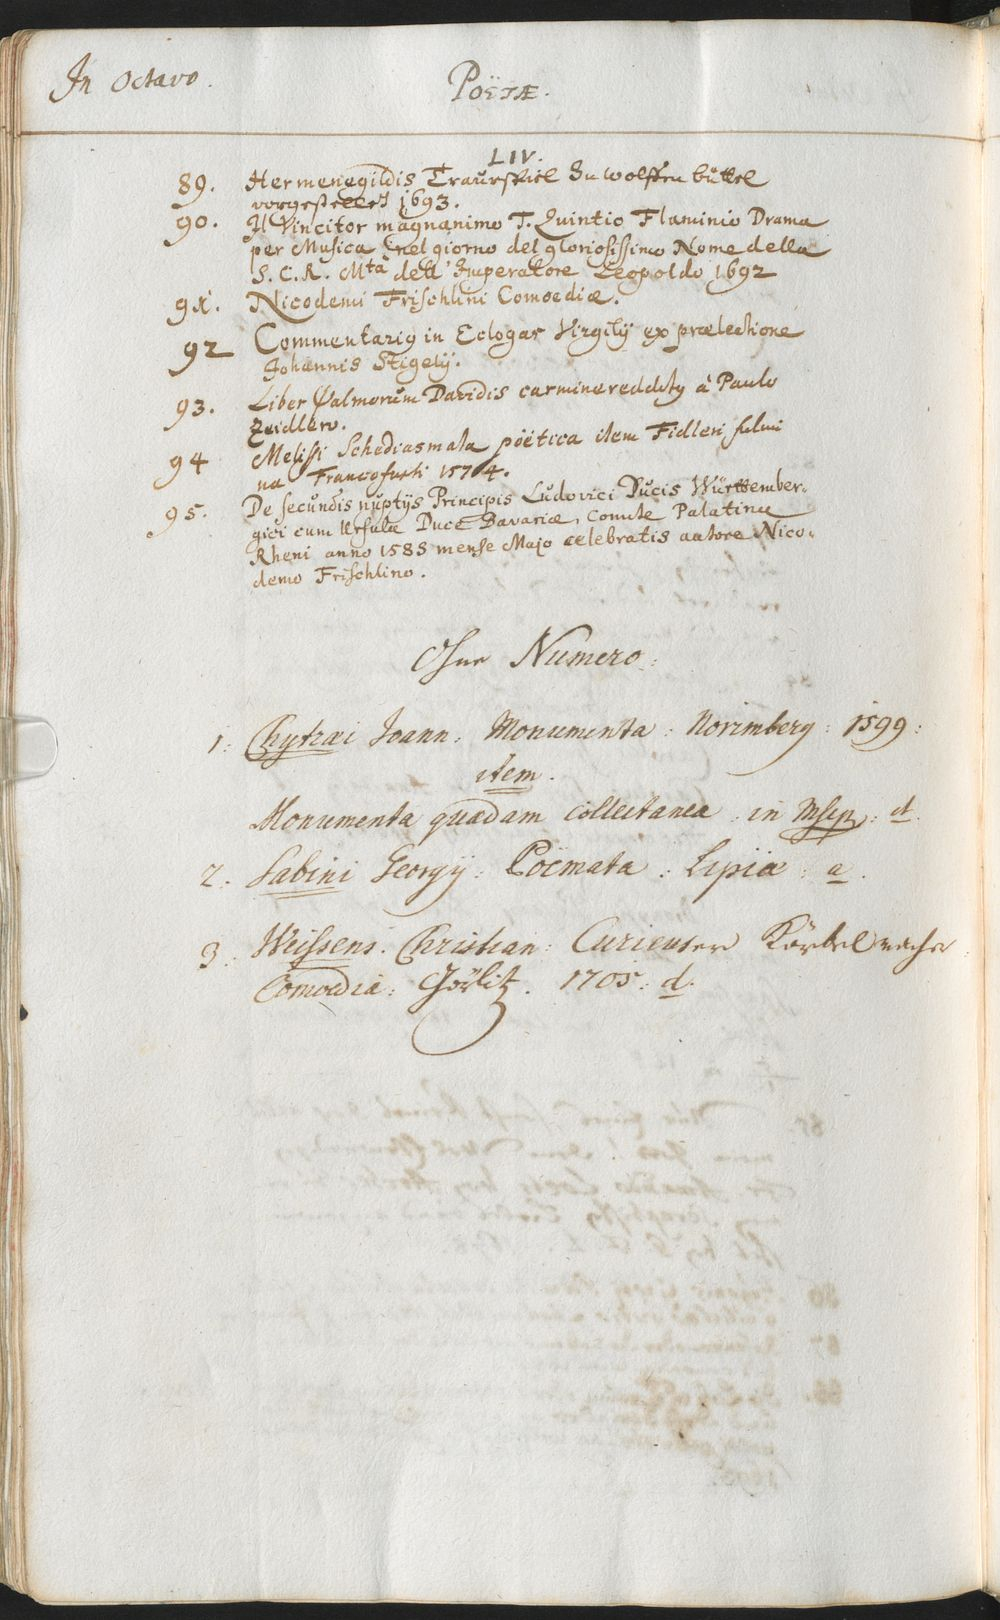 In Octavo.
Poëtæ.
LIV.
89. Hermenegildis Traurspiel Zu wolffenbüttel
vorgestellet 1693.
90. Il Vincitor magnanimo T. Quintio Flaminio Drama
per Musica nel giorno del gloriosissimo Nome della
S. C. R. Mtà dell' Imperatore Leopoldo 1692
91. Nicodemi Frischlini Comoediæ.
92 Commentarig in Eclogas Virgilij ex prælectione
Johannis Stigelij.
93. Liber Psalmorum Davidis carmine redditg à Paulo
Zeidlero.
94 Melissi Schediasmata poëtica item Fidleri fulmi
na Francofurti 1574.
95. De secundis nuptijs Principis Ludovici Ducis Würtember-
gici cum Ursula Duce Bavariæ, Comite Palatina
Rheni anno 1585 mense Majo celebratis autore Nico-
demo Frischlino.
Ohne Numero.
1: Chytræi Joann. Monumenta. Norimberg: 1599:
item.
Monumenta quædam collectanea in Mscp: d.
2. Sabini Georgij. Poëmata. Lipsiæ. a.
3. Weissens. Christian: Curieuser Körbelmacher
Comoedia: Görlitz. 1705. d.